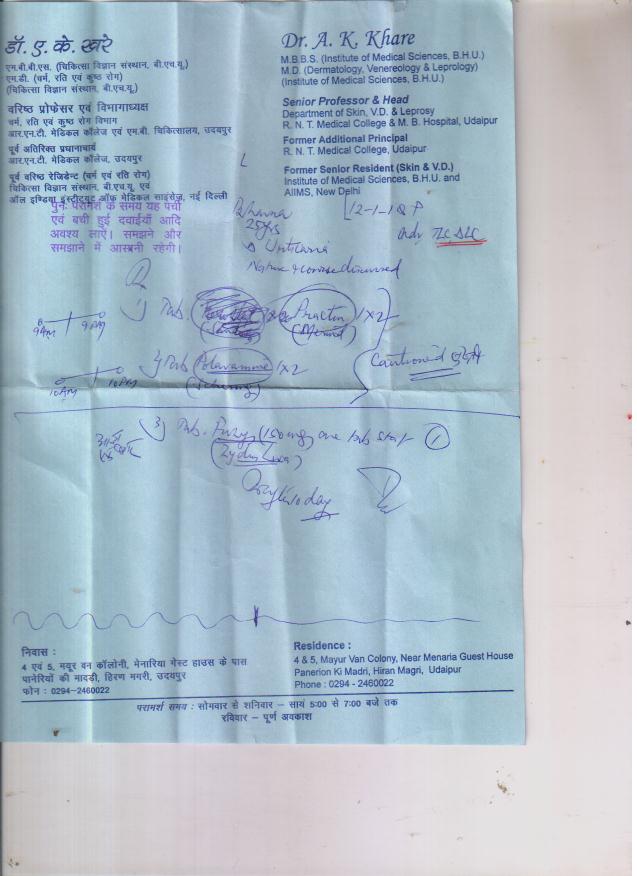 डॉ. ए. के. खरे
एम.बी.बी.एस. (चिकित्सा विज्ञान संस्थान, बी.एच.यू.)
एम.डी. (चर्म, रति एवं कुष्ठ रोग)
(चिकित्सा विज्ञान संस्थान, बी.एच.यू.)
वरिष्ठ प्रोफेसर एवं विभागाध्यक्ष
चर्म, रति एवं कुष्ठ रोग विभाग
आर.एन.टी. मेडिकल कॉलेज एवं एम.बी. चिकित्सालय, उदयपुर
पूर्व अतिरिक्त प्रधानाचार्य
आर.एन.टी. मेडिकल कॉलेज, उदयपुर
पूर्व वरिष्ठ रेजिडेन्ट (चर्म एवं रति रोग)
चिकित्सा विज्ञान संस्थान, बी.एच.यू. एवं
ऑल इण्डिया इंस्टीट्यूट ऑफ मेडिकल साइंसेज, नई दिल्ली
Dr. A. K. Khare
M.B.B.S. (Institute of Medical Sciences, B.H.U.)
M.D. (Dermatology, Venereology & Leprology)
(Institute of Medical Sciences, B.H.U.)
Senior Professor & Head
Department of Skin, V.D. & Leprosy
R. N. T. Medical College & M. B. Hospital, Udaipur
Former Additional Principal
R. N. T. Medical College, Udaipur
Former Senior Resident (Skin & V.D.)
Institute of Medical Sciences, B.H.U. and
AIIMS, New Delhi
पुनः परामर्श के समय यह पर्चा
एवं बची हुई दवाईयाँ आदि
अवश्य लाऐं। समझने और
समझाने में आसानी रहेगी।
25yrs
Urticaria
Nature & course discussed
adv TLC, DLC
1) Tab. Practin 1x2
9AM 9PM
2) Tab 1x2
10AM 10PM
Cautioned
3) Tab. (150mg) one tab stat 1
निवास :
4 एवं 5, मयूर वन कॉलोनी, मेनारिया गेस्ट हाउस के पास
पानेरियों की मादड़ी, हिरण मगरी, उदयपुर
फोन : 0294-2460022
Residence :
4 & 5, Mayur Van Colony, Near Menaria Guest House
Panerion Ki Madri, Hiran Magri, Udaipur
Phone : 0294 - 2460022
परामर्श समय : सोमवार से शनिवार – सायं 5:00 से 7:00 बजे तक
रविवार – पूर्ण अवकाश